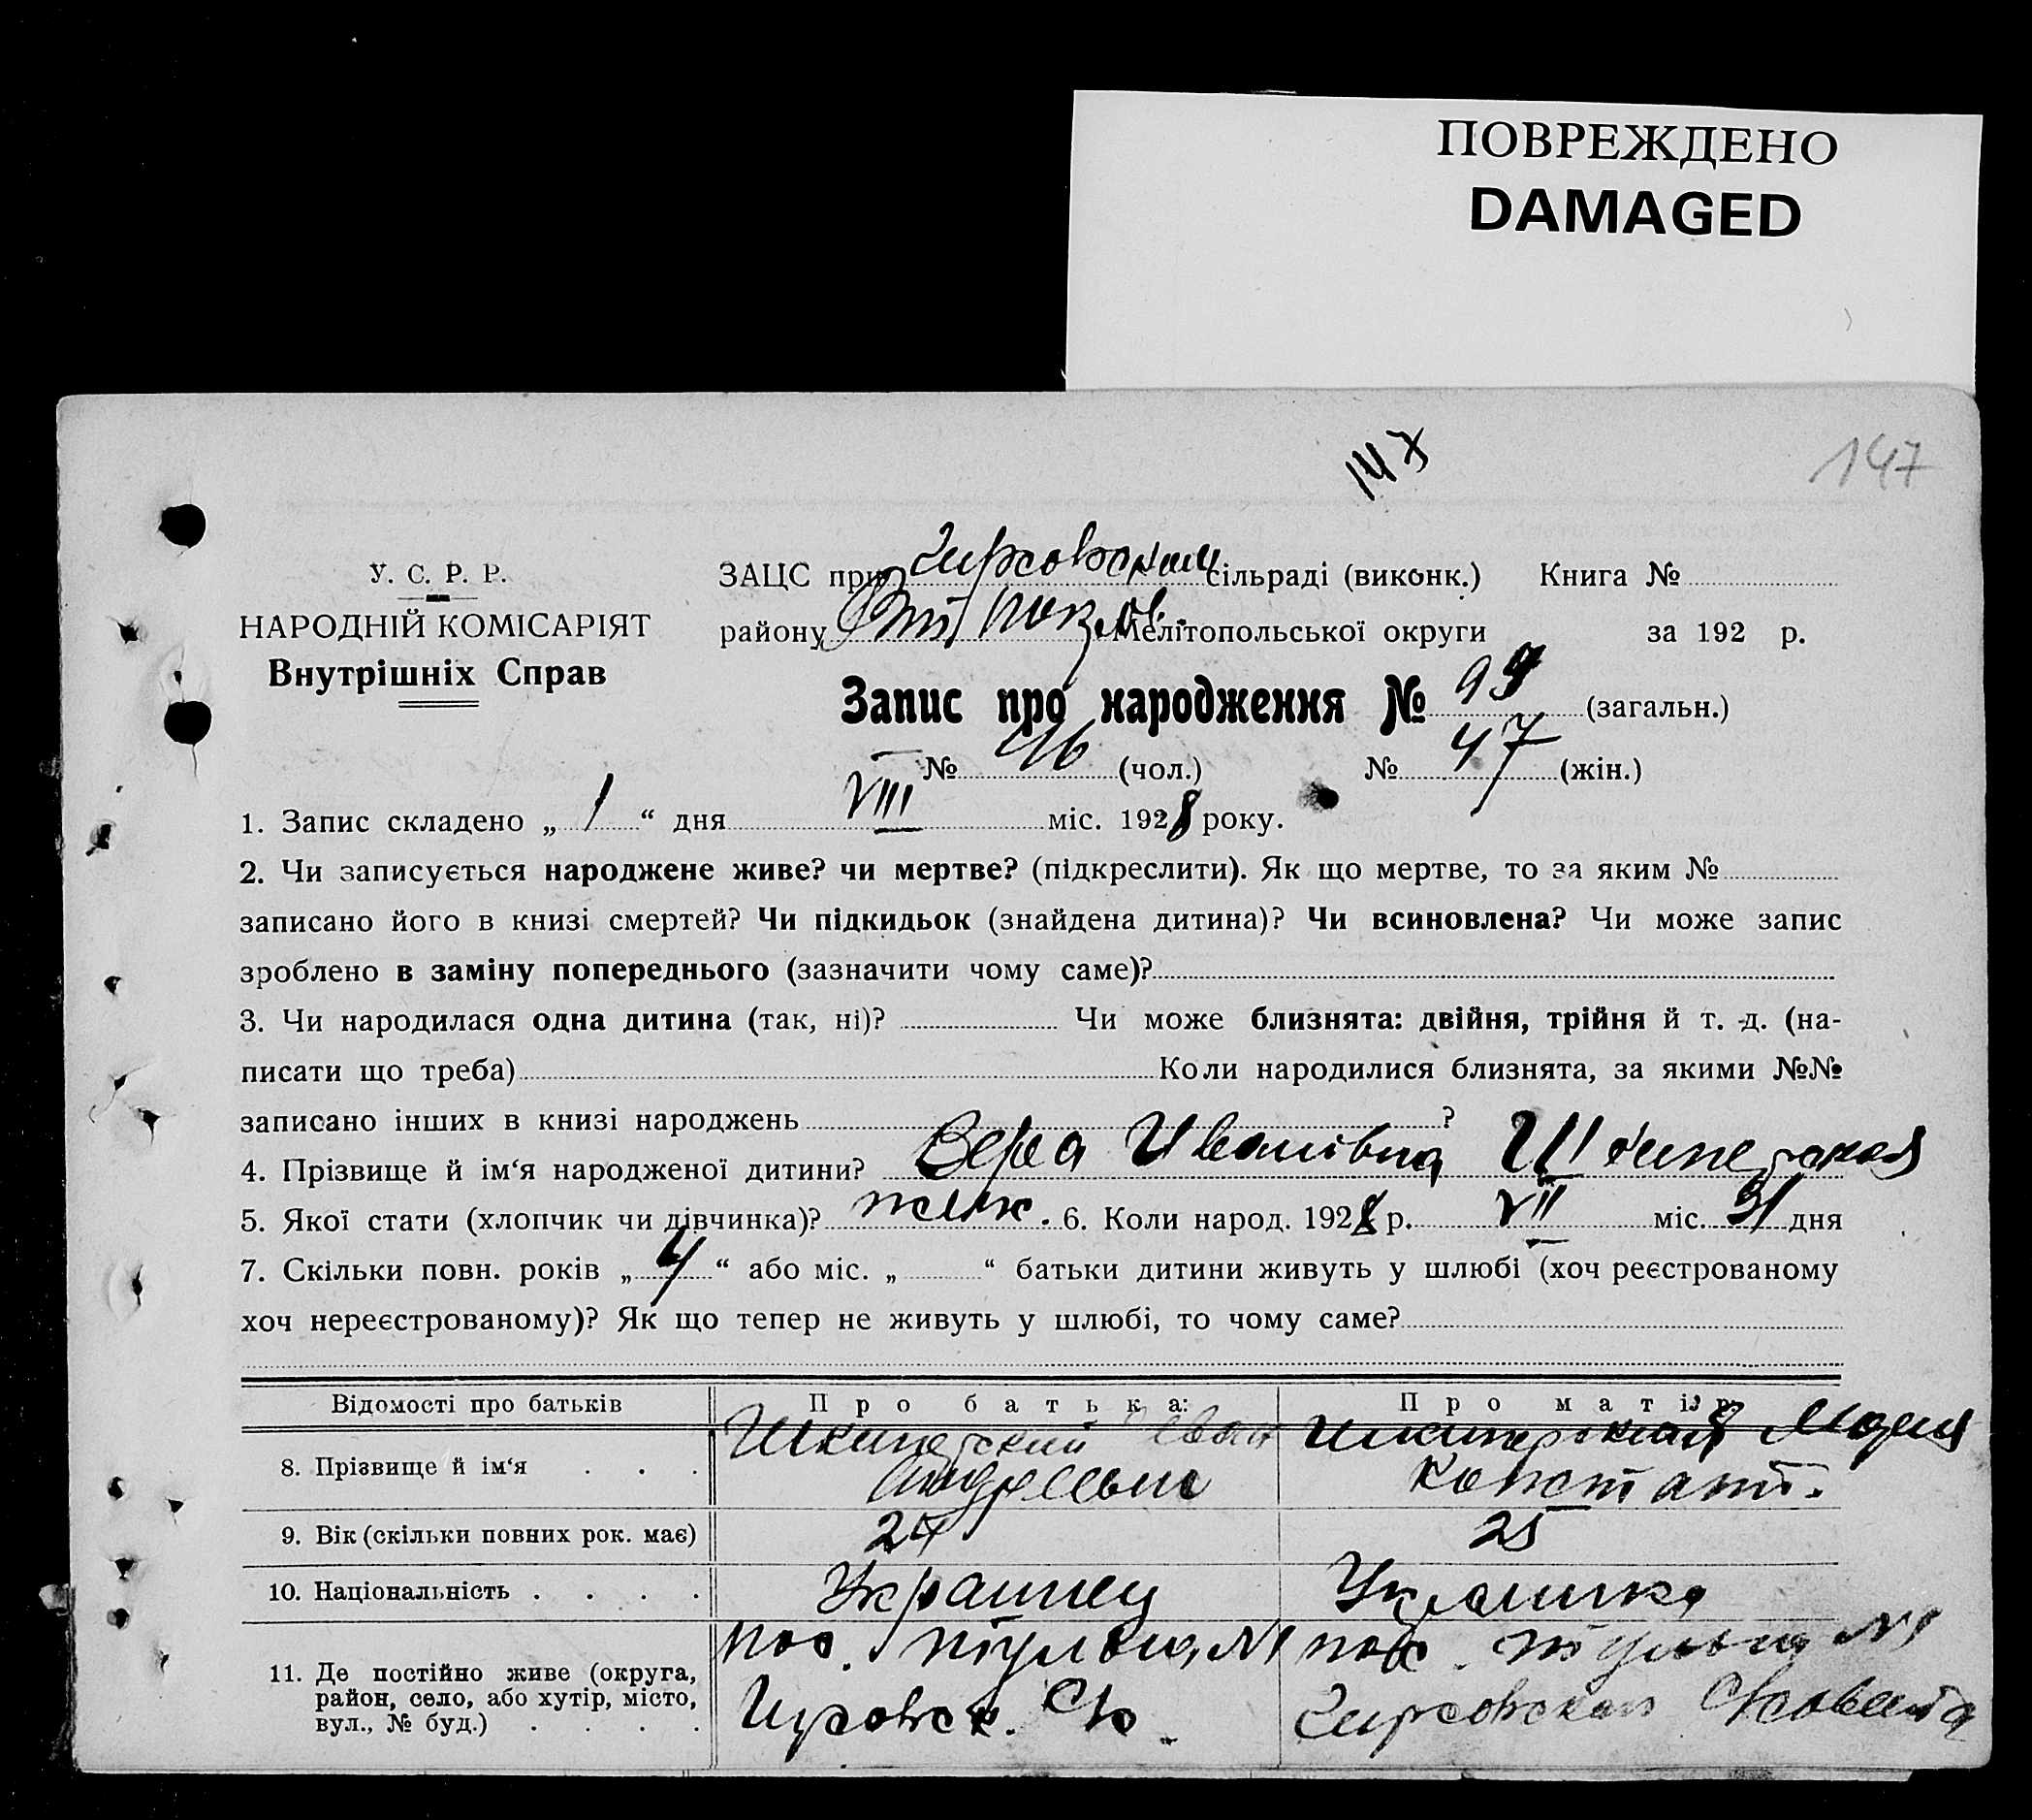 ПОВРЕЖДЕНО
DAMAGED
147
147
У. С. Р. Р.
НАРОДНІЙ КОМІСАРІЯТ
Внутрішніх Справ
ЗАЦС при Гирсовском сільраді (виконк.) Книга №
району Мелітопольської округи за 192 р.
Запис про народження № 93 (загальн.)
№ 46 (чол.) № 47 (жін.)
1. Запис складено „ 1 “ дня VIII міс. 1928 року.
2. Чи записується народжене живе? чи мертве? (підкреслити). Як що мертве, то за яким №
записано його в книзі смертей? Чи підкидьок (знайдена дитина)? Чи всиновлена? Чи може запис
зроблено в заміну попереднього (зазначити чому саме)?
3. Чи народилася одна дитина (так, ні)? Чи може близнята: двійня, трійня й т. д. (на-
писати що треба) Коли народилися близнята, за якими №№
записано інших в книзі народжень ?
4. Прізвище й ім‘я народженої дитини? Вера Ивановна Шкиперская
5. Якої стати (хлопчик чи дівчинка)? женж. 6. Коли народ. 1928 р. VII міс. 31 дня
7. Скільки повн. років „ 4 “ або міс. „ “ батьки дитини живуть у шлюбі (хоч реєстрованому
хоч нереєстрованому)? Як що тепер не живуть у шлюбі, то чому саме?
Відомості про батьків Про батька: Про матір:
8. Прізвище й ім‘я . . . Шкиперский Иван Андреевич Шкиперская Мария Констант.
9. Вік (скільки повних рок. має) 24 25
10. Національність . . . . Украинец Украинка
11. Де постійно живе (округа, район, село, або хутір, місто, вул., № буд.) . . . . пос. №1 пос. №1 Гирсовского Ссовета